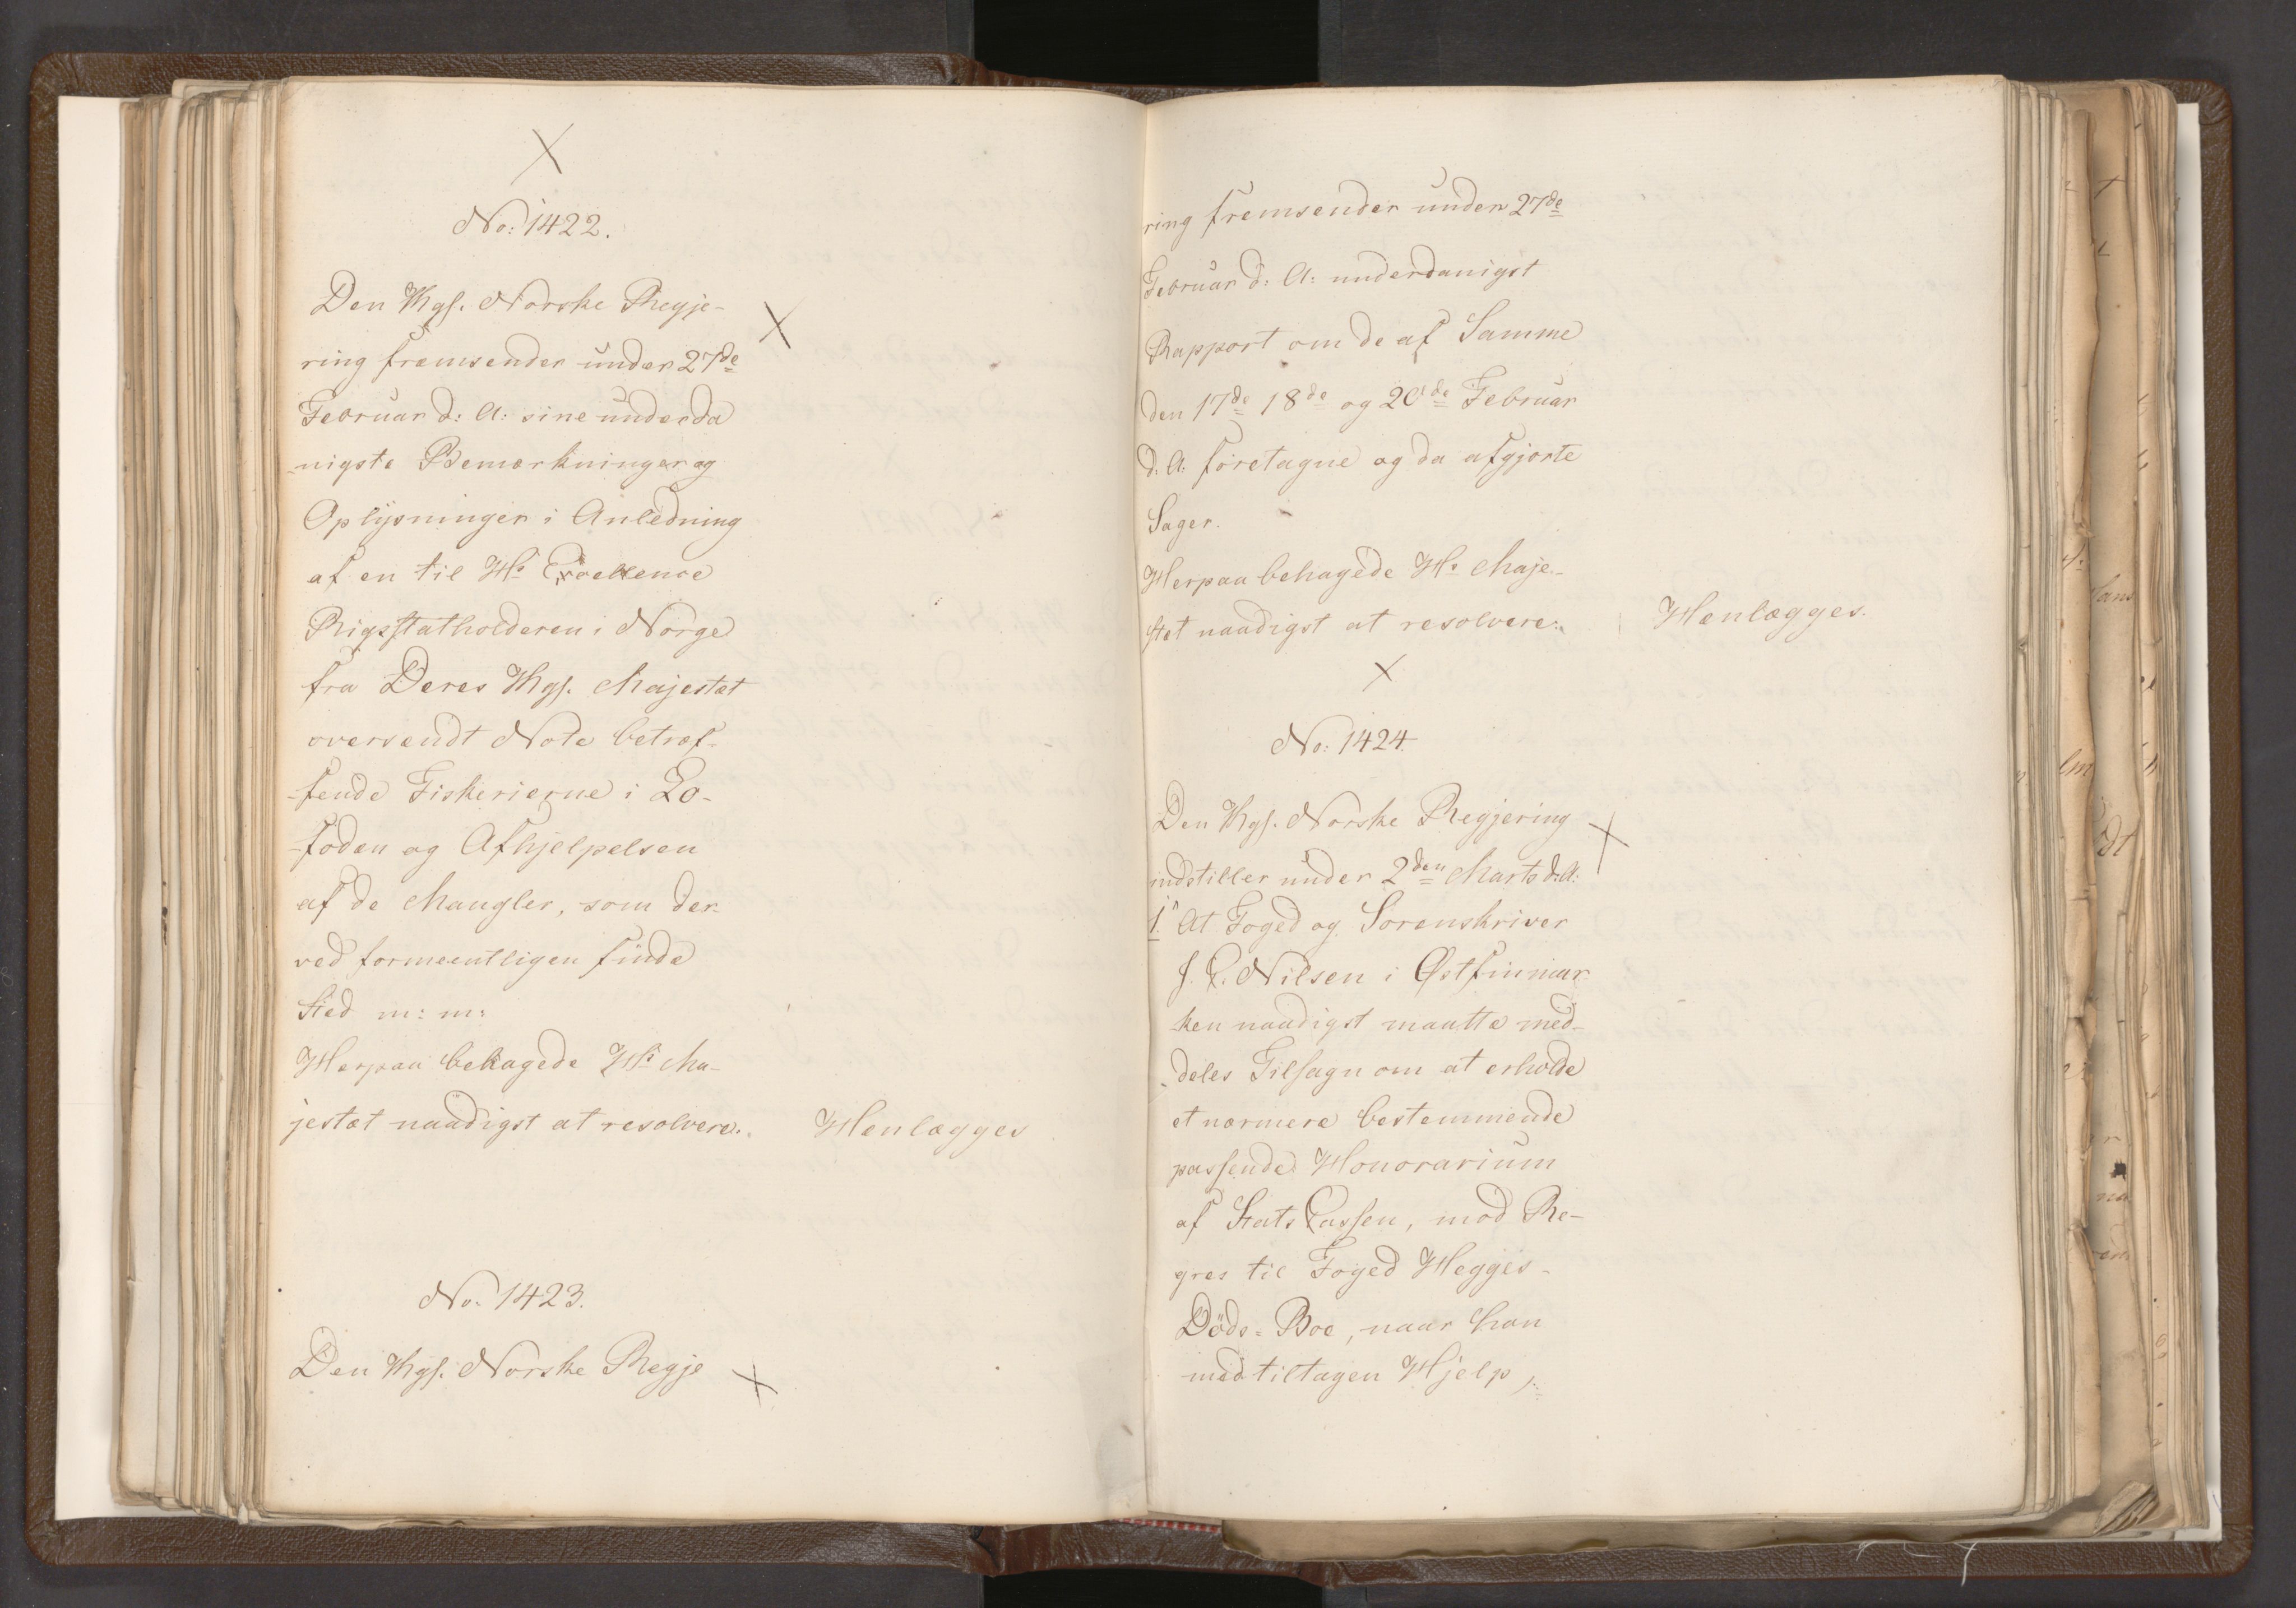 No: 1422.
Den Kgs. Norske Regje-
ring fremsender under 27de
Februar d: A: sine underda
-nigste Bemærkninger og
Oplysninger i Anledning
af en til Hs Excellence
Rigsstatholderen i Norge
fra Deres Kgs. Majestæt
oversendt Note betræf-
-fende Fiskerierne i Lo-
-foden og Afhjelpelsen
af de Mangler, som der-
ved formeentligen finde
Sted m: m:
Herpaa behagede Hs Ma-
jestæt naadigst at resolvere. Henlægges
No: 1423.
Den Kgs. Norske Regje
ring fremsender under 27de
Februar d: A: underdanigst
Rapport om de af Samme
den 17de 18de og 20de Februar
d. A: foretagne og da afgjorte
Sager.
Herpaa behagede Hs Maje-
stæt naadigst at resolvere: Henlægges.
No: 1424.
Den Kgs. Norske Regjering
indstiller under 2den Marts d:A:
1. At Foged og Sorenskriver
J. C. Nilsen i Østfinmar-
-ken naadigst maatte med-
-deles Tilsagn om at erholde
et nærmere bestemmende
passende Honorarium
af Stats Cassen, mod Re-
gres til Foged Hegges-
Döds-Boe, naar han
med tiltagen Hjelp,